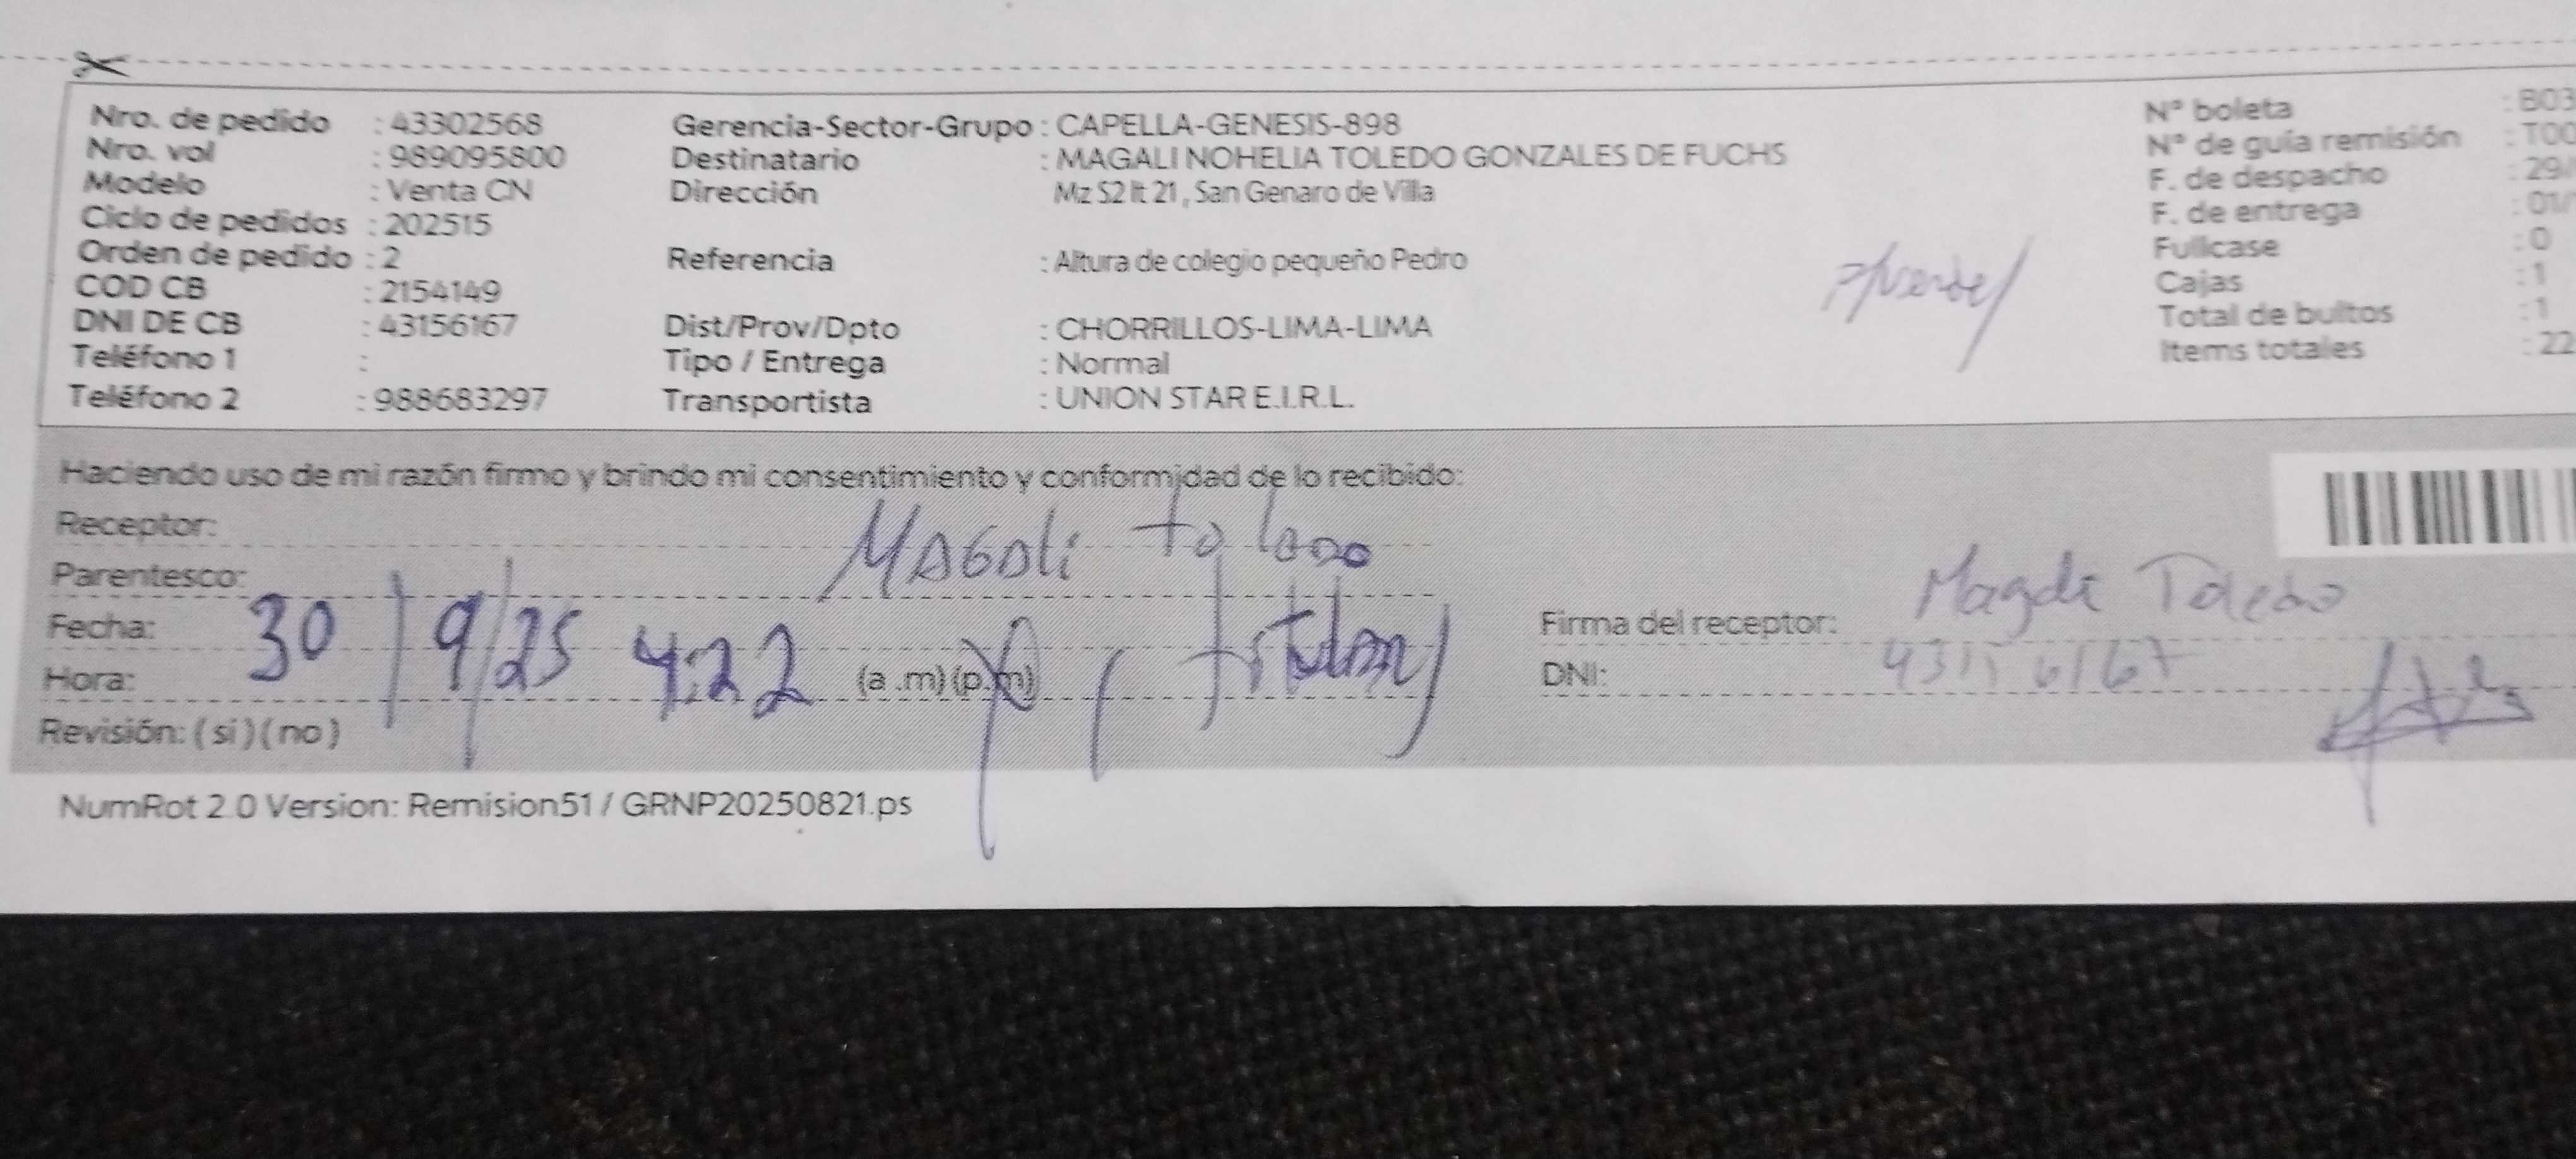 Nro. de pedido : 43302568 Gerencia-Sector-Grupo : CAPELLA-GENESIS-898 N° boleta : B03
Nro. vol : 989095800 Destinatario : MAGALI NOHELIA TOLEDO GONZALES DE FUCHS N° de guía remisión : T00
Modelo : Venta CN Dirección Mz S2 lt 21 , San Genaro de Villa F. de despacho : 29/
Ciclo de pedidos : 202515 F. de entrega : 01/
Orden de pedido : 2 Referencia : Altura de colegio pequeño Pedro Fullcase : 0
COD CB : 2154149 Cajas : 1
DNI DE CB : 43156167 Dist/Prov/Dpto : CHORRILLOS-LIMA-LIMA Total de bultos : 1
Teléfono 1 : Tipo / Entrega : Normal Items totales : 22
Teléfono 2 : 988683297 Transportista : UNION STAR E.I.R.L.
Haciendo uso de mi razón firmo y brindo mi consentimiento y conformidad de lo recibido:
Receptor: Magali Toledo
Parentesco:
Fecha: 30/9/25 Firma del receptor: Magali Toledo
Hora: 4:22 (a .m) (p.m) DNI: 43156167
Revisión: ( si ) ( no )
NumRot 2.0 Version: Remision51 / GRNP20250821.ps